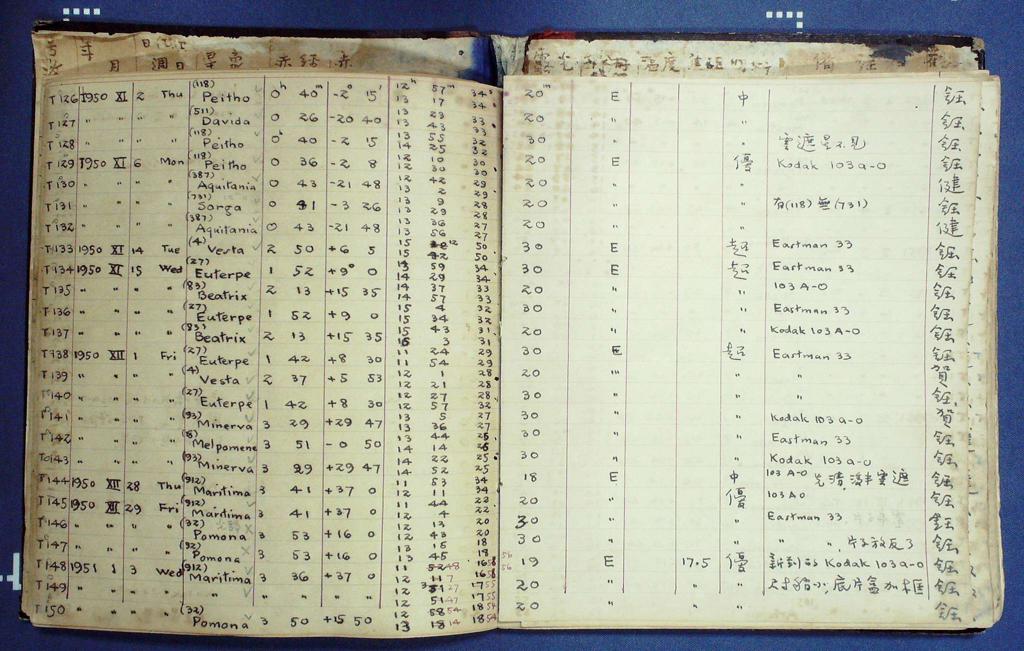 T126 1950 XI 2 Thu (118) Peitho 0h 40m -2° 15' 12h 57m 34s 20m E 中 鈺
13 17 34
T127 " " " " (511) Davida 0 26 -20 40 13 23 33 20 " " 鈺
13 43 33
T128 " " " " (118) Peitho 0h 40 -2 15 13 55 32 30 " " 雲遮星不見 鈺
14 25 32
T129 1950 XI 6 Mon (118) Peitho 0 36 -2 8 12 10 30 20 E 優 Kodak 103a-O 鈺
12 30 30
T130 " " " " (387) Aquitania 0 43 -21 48 12 42 29 20 " " 健
13 2 29
T131 " " " " (731) Sorga 0 41 -3 26 13 9 28 20 " " 有(118) 無(731) 鈺
13 29 28
T132 " " " " (387) Aquitania 0 43 -21 48 13 36 27 20 " " 健
13 56 27
T133 1950 XI 14 Tue (4) Vesta 2 50 +6 5 15 12 50 30 E 起 Eastman 33 鈺
15 42 50
T134 1950 XI 15 Wed (27) Euterpe 1 52 +9° 0 13 59 34 30 E 起 Eastman 33 鈺
14 29 34
T135 " " " " (83) Beatrix 2 13 +15 35 14 37 33 20 " " 103 A-O 鈺
14 57 33
T136 " " " " (27) Euterpe 1 52 +9 0 15 4 32 30 " " Eastman 33 鈺
15 34 32
T137 " " " " (83) Beatrix 2 13 +15 35 15 43 31 20 " " Kodak 103 A-O 鈺
16 3 31
T138 1950 XII 1 Fri (27) Euterpe 1 42 +8 30 11 24 29 30 E 起 Eastman 33 鈺
11 54 29
T139 " " " " (4) Vesta 2 37 +5 53 12 1 28 20 " " " 賀
12 21 28
T140 " " " " (27) Euterpe 1 42 +8 30 12 27 28 30 " " " 鈺
12 57 32
T141 " " " " (93) Minerva 3 29 +29 47 13 5 27 30 " " Kodak 103 a-O 賀
13 36 27
T142 " " " " (18) Melpomene 3 51 -0 50 13 44 26 30 " " Eastman 33 鈺
14 14 26
T143 " " " " (93) Minerva 3 29 +29 47 14 22 25 30 " " Kodak 103 a-O 鈺
14 52 25
T144 1950 XII 28 Thu (912) Maritima 3 41 +37 0 11 53 34 18 E 中 103 A-O 鈺
12 11 34
T145 1950 XII 29 Fri (912) Maritima 3 41 +37 0 11 44 22 20 " 優 103 A O 鈺
12 4 22
T146 " " " " (32) Pomona 3 53 +16 0 12 13 20 30 " " Eastman 33 鈺
12 43 20
T147 " " " " (32) Pomona 3 53 +16 0 13 15 18 30 " " " 片子放反了 鈺
13 45 18
T148 1951 1 3 Wed (912) Maritima 3 36 +37 0 19 E 17.5 優 新到的 Kodak 103a-O 鈺
T149 " " " " " " " " " 20 " " " 尺寸稍小,底片盒加框 鈺
T150 " " " " (32) Pomona 3 50 +15 50 20 " " " 鈺